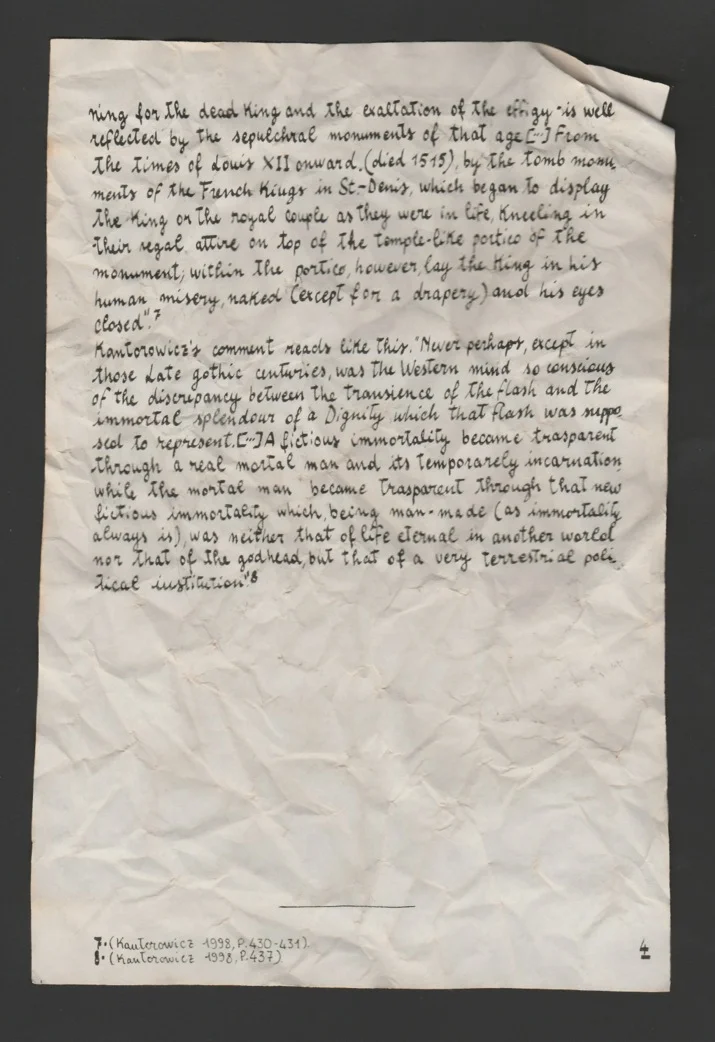 ning for the dead King and the exaltation of the effigy - is well
reflected by the sepulchral monuments of that age[...] From
the times of Louis XII onward, (died 1515), by the tomb monu
ments of the French Kings in St-Denis, which began to display
the King or the royal couple as they were in life, kneeling in
their regal attire on top of the temple-like portico of the
monument; within the portico, however, lay the King in his
human misery, naked (except for a drapery) and his eyes
closed".7
Kantorowicz's comment reads like this. "Never perhaps, except in
those Late gothic centuries, was the Western mind so conscious
of the discrepancy between the transience of the flash and the
immortal splendour of a Dignity which that flash was suppo
sed to represent.[...] A fictious immortality became trasparent
through a real mortal man and its temporarely incarnation
while the mortal man became trasparent through that new
fictious immortality which, being man-made (as immortality
always is), was neither that of life eternal in another world
nor that of the godhead, but that of a very terrestrial poli
tical institution"8
7. (Kantorowicz 1998, P.430-431).
8. (Kantorowicz 1998, P.437)
4